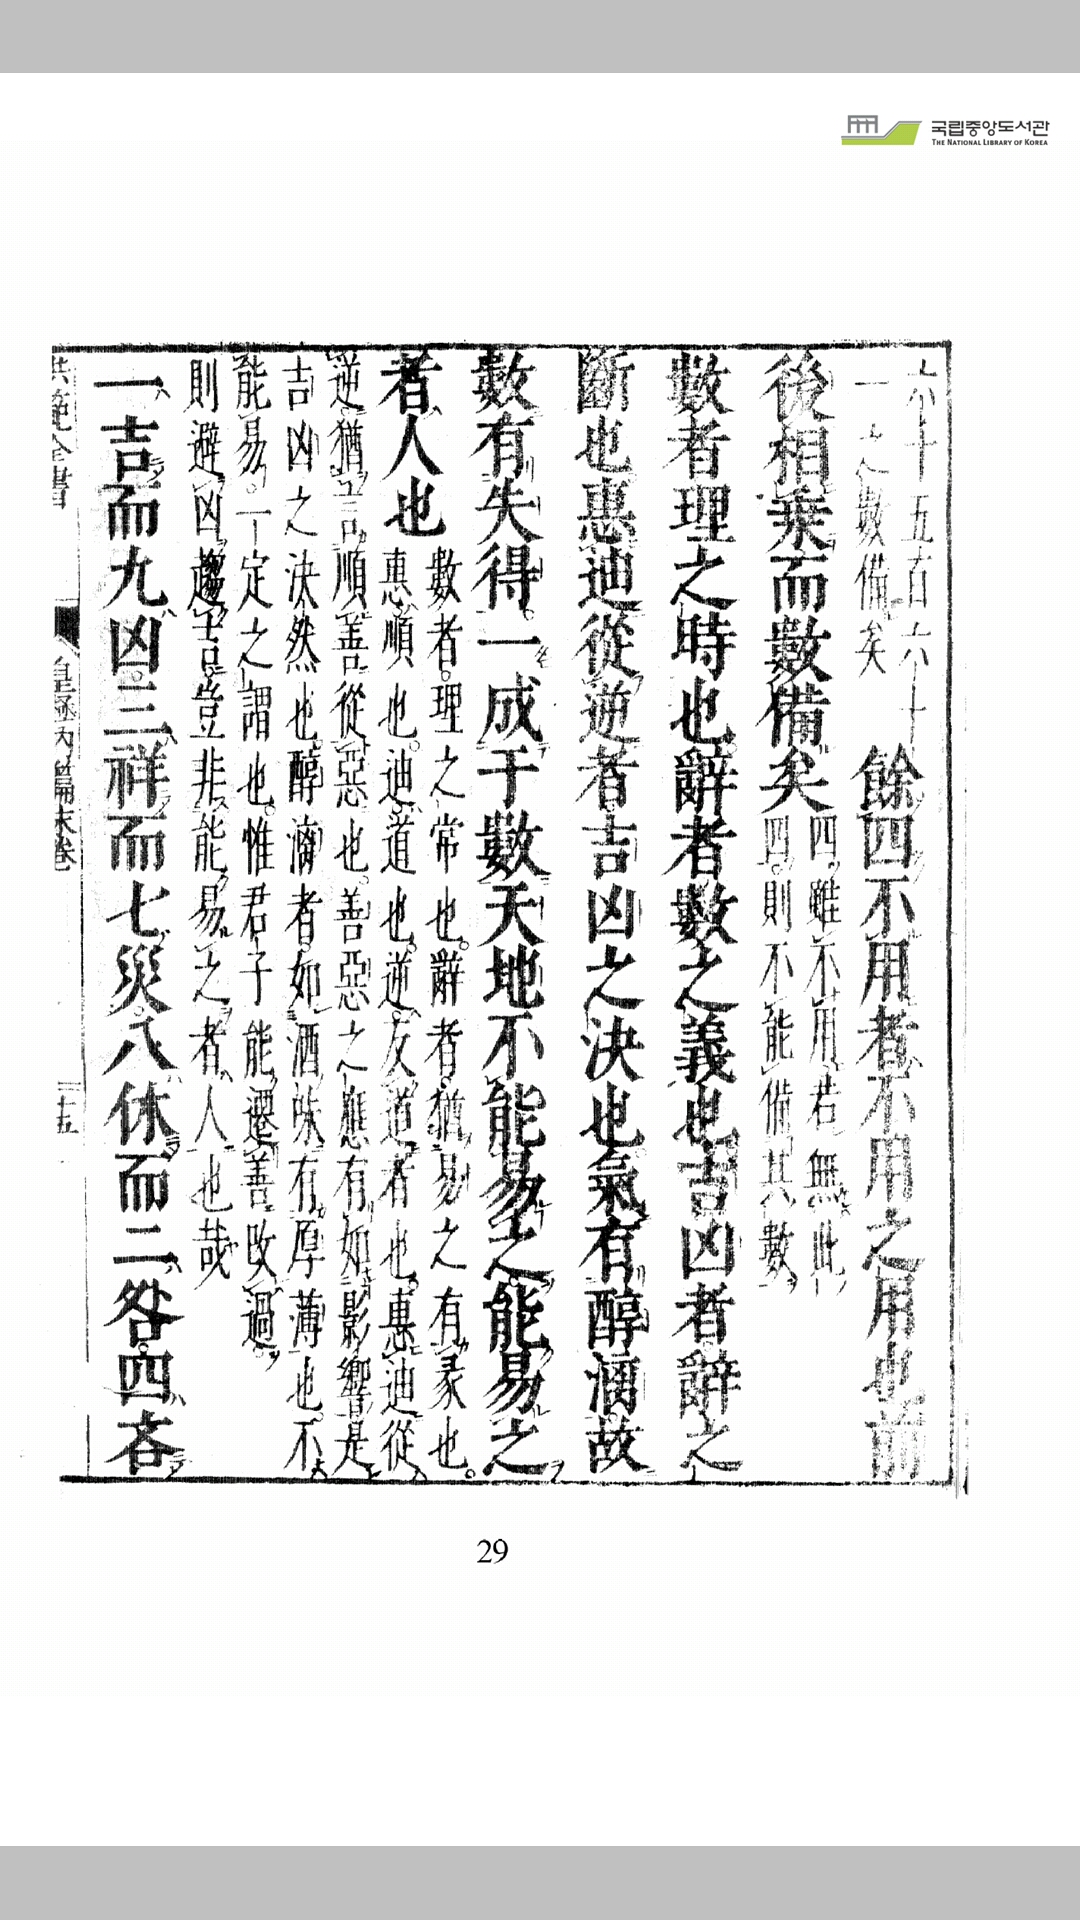 국립중앙도서관
THE NATIONAL LIBRARY OF KOREA
六十五百六十
一之數備矣
餘四不用者不用之用也前
後相乘而數備矣
四雖不用若無此
四則不能備其數
數者理之時也辭者數之義也吉凶者辭之
斷也惠迪從逆者吉凶之決也氣有醇漓故
數有失得一成于數天地不能易之能易之
者人也
數者理之常也辭者猶易之有彖也
惠順也迪道也逆反道者也惠迪從
逆猶言順善從惡也善惡之應有如影響是
吉凶之決然也醇漓者如酒味有厚薄也不
能易一定之謂也惟君子能遷善改過
則避凶趨吉豈非能易之者人也哉
一吉而九凶三祥而七災八休而二咎四吝
洪範全書
皇極內篇末卷
三十五
29